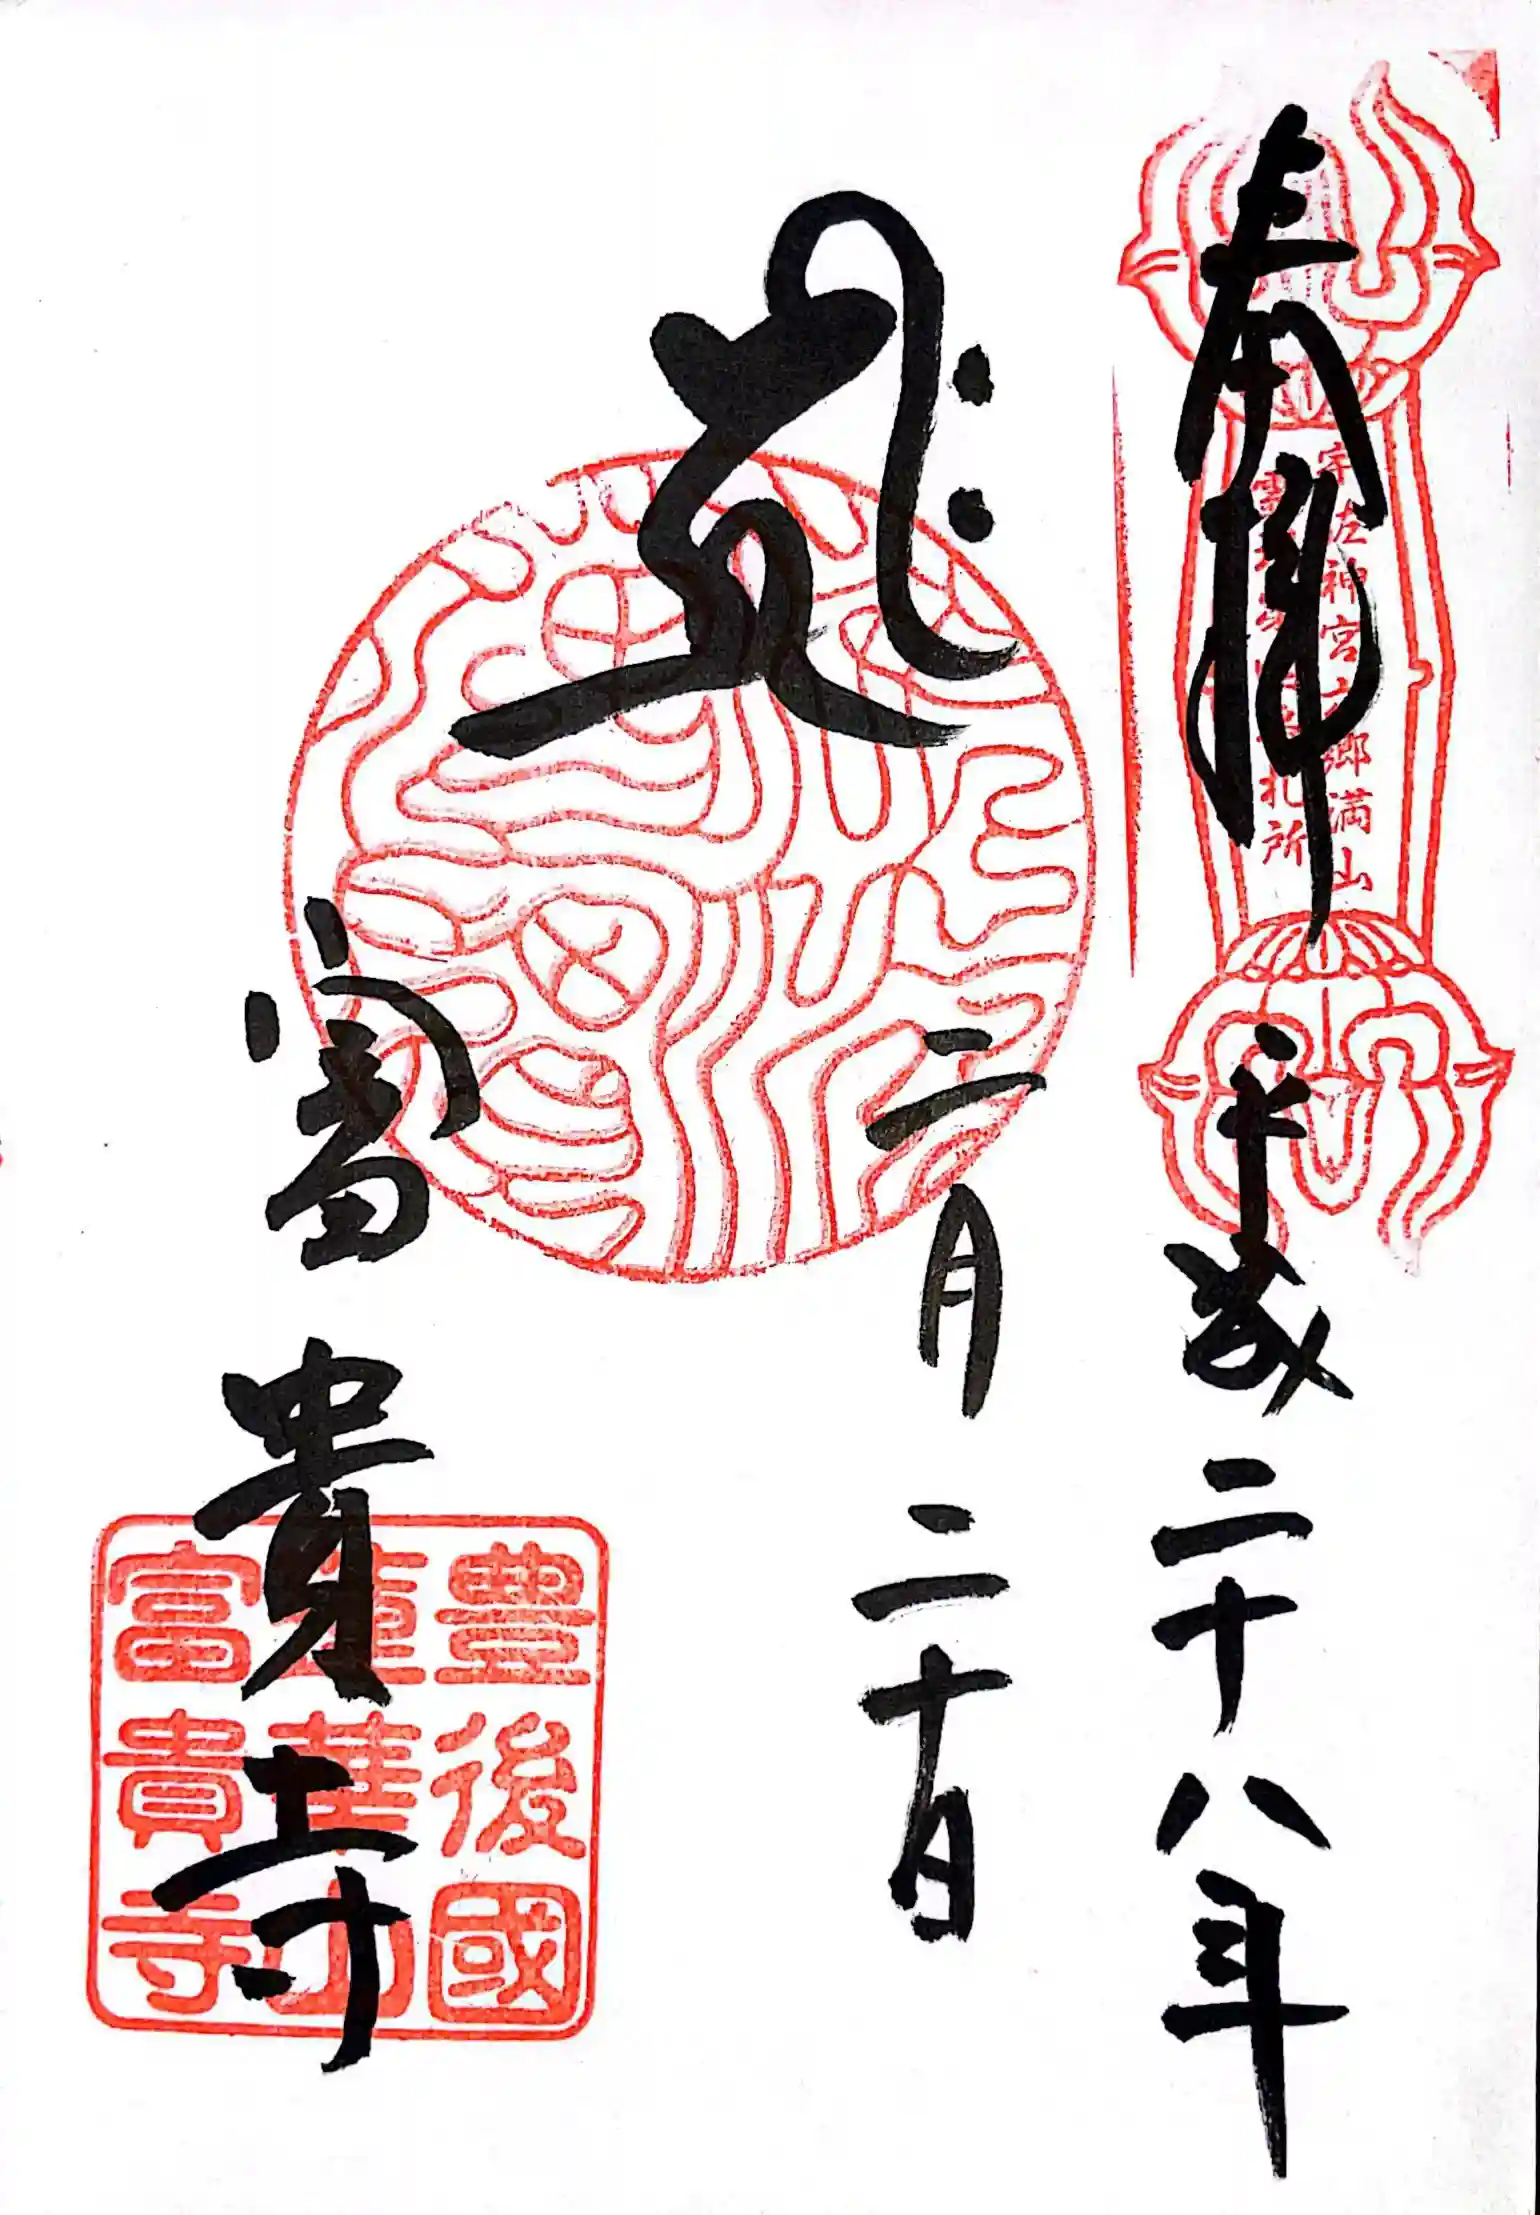 奉拝 平成二十八年
宇佐神宮六郷満山
霊場 札所
二月二十日
𑖮𑖿𑖨𑖱𑖾
富貴寺
豊後國
蓮華山
富貴寺